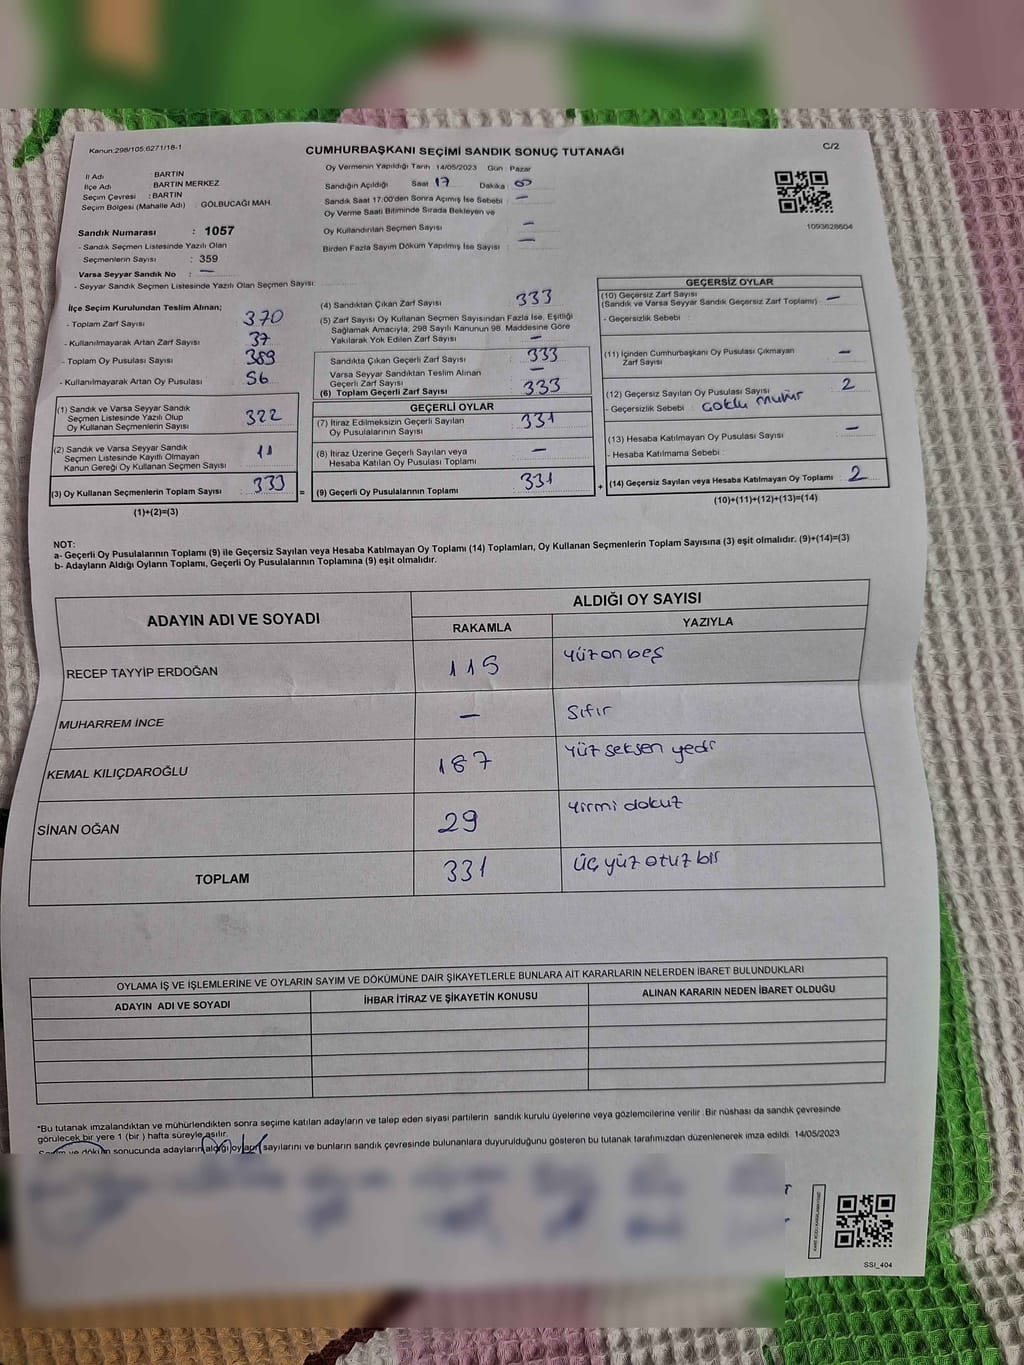 Kanun:298/105.6271/18-1
CUMHURBAŞKANI SEÇİMİ SANDIK SONUÇ TUTANAĞI
C/2
İl Adı BARTIN
İlçe Adı BARTIN MERKEZ
Seçim Çevresi : BARTIN
Seçim Bölgesi (Mahalle Adı) : GÖLBUCAĞI MAH.
Sandık Numarası : 1057
- Sandık Seçmen Listesinde Yazılı Olan
Seçmenlerin Sayısı : 359
Varsa Seyyar Sandık No : —
- Seyyar Sandık Seçmen Listesinde Yazılı Olan Seçmen Sayısı:
Oy Vermenin Yapıldığı Tarih : 14/05/2023 Gün : Pazar
Sandığın Açıldığı Saat 17 Dakika 00
Sandık Saat 17:00'den Sonra Açmış İse Sebebi —
Oy Verme Saati Bitiminde Sırada Bekleyen ve
Oy Kullandırılan Seçmen Sayısı —
Birden Fazla Sayım Döküm Yapılmış İse Sayısı —
1093628604
İlçe Seçim Kurulundan Teslim Alınan;
- Toplam Zarf Sayısı 370
- Kullanılmayarak Artan Zarf Sayısı 37
- Toplam Oy Pusulası Sayısı 389
- Kullanılmayarak Artan Oy Pusulası 56
(1) Sandık ve Varsa Seyyar Sandık
Seçmen Listesinde Yazılı Olup
Oy Kullanan Seçmenlerin Sayısı 322
(2) Sandık ve Varsa Seyyar Sandık
Seçmen Listesinde Kayıtlı Olmayan
Kanun Gereği Oy Kullanan Seçmen Sayısı 11
(3) Oy Kullanan Seçmenlerin Toplam Sayısı 333 =
(1)+(2)=(3)
(4) Sandıktan Çıkan Zarf Sayısı 333
(5) Zarf Sayısı Oy Kullanan Seçmen Sayısından Fazla İse, Eşitliği
Sağlamak Amacıyla, 298 Sayılı Kanunun 98. Maddesine Göre
Yakılarak Yok Edilen Zarf Sayısı —
Sandıkta Çıkan Geçerli Zarf Sayısı 333
Varsa Seyyar Sandıktan Teslim Alınan
Geçerli Zarf Sayısı —
(6) Toplam Geçerli Zarf Sayısı 333
GEÇERLİ OYLAR
(7) İtiraz Edilmeksizin Geçerli Sayılan
Oy Pusulalarının Sayısı 331
(8) İtiraz Üzerine Geçerli Sayılan veya
Hesaba Katılan Oy Pusulası Toplamı —
(9) Geçerli Oy Pusulalarının Toplamı 331 +
GEÇERSİZ OYLAR
(10) Geçersiz Zarf Sayısı
(Sandık ve Varsa Seyyar Sandık Geçersiz Zarf Toplamı) —
- Geçersizlik Sebebi :
(11) İçinden Cumhurbaşkanı Oy Pusulası Çıkmayan
Zarf Sayısı —
(12) Geçersiz Sayılan Oy Pusulası Sayısı 2
- Geçersizlik Sebebi : çoklu mühür
(13) Hesaba Katılmayan Oy Pusulası Sayısı —
- Hesaba Katılmama Sebebi :
(14) Geçersiz Sayılan veya Hesaba Katılmayan Oy Toplamı : 2
(10)+(11)+(12)+(13)=(14)
NOT:
a- Geçerli Oy Pusulalarının Toplamı (9) ile Geçersiz Sayılan veya Hesaba Katılmayan Oy Toplamı (14) Toplamları, Oy Kullanan Seçmenlerin Toplam Sayısına (3) eşit olmalıdır. (9)+(14)=(3)
b- Adayların Aldığı Oyların Toplamı, Geçerli Oy Pusulalarının Toplamına (9) eşit olmalıdır.
ADAYIN ADI VE SOYADI ALDIĞI OY SAYISI
RAKAMLA YAZIYLA
RECEP TAYYİP ERDOĞAN 115 yüzonbeş
MUHARREM İNCE — Sıfır
KEMAL KILIÇDAROĞLU 187 yüz seksen yedi
SİNAN OĞAN 29 yirmi dokuz
TOPLAM 331 üç yüz otuz bir
OYLAMA İŞ VE İŞLEMLERİNE VE OYLARIN SAYIM VE DÖKÜMÜNE DAİR ŞİKAYETLERLE BUNLARA AİT KARARLARIN NELERDEN İBARET BULUNDUKLARI
ADAYIN ADI VE SOYADI İHBAR İTİRAZ VE ŞİKAYETİN KONUSU ALINAN KARARIN NEDEN İBARET OLDUĞU
*Bu tutanak imzalandıktan ve mühürlendikten sonra seçime katılan adayların ve talep eden siyasi partilerin sandık kurulu üyelerine veya gözlemcilerine verilir. Bir nüshası da sandık çevresinde
görülecek bir yere 1 (bir ) hafta süreyle asılır.
Sayım ve döküm sonucunda adayların aldığı oyların sayılarını ve bunların sandık çevresinde bulunanlara duyurulduğunu gösteren bu tutanak tarafımızdan düzenlenerek imza edildi. 14/05/2023
SSI_404